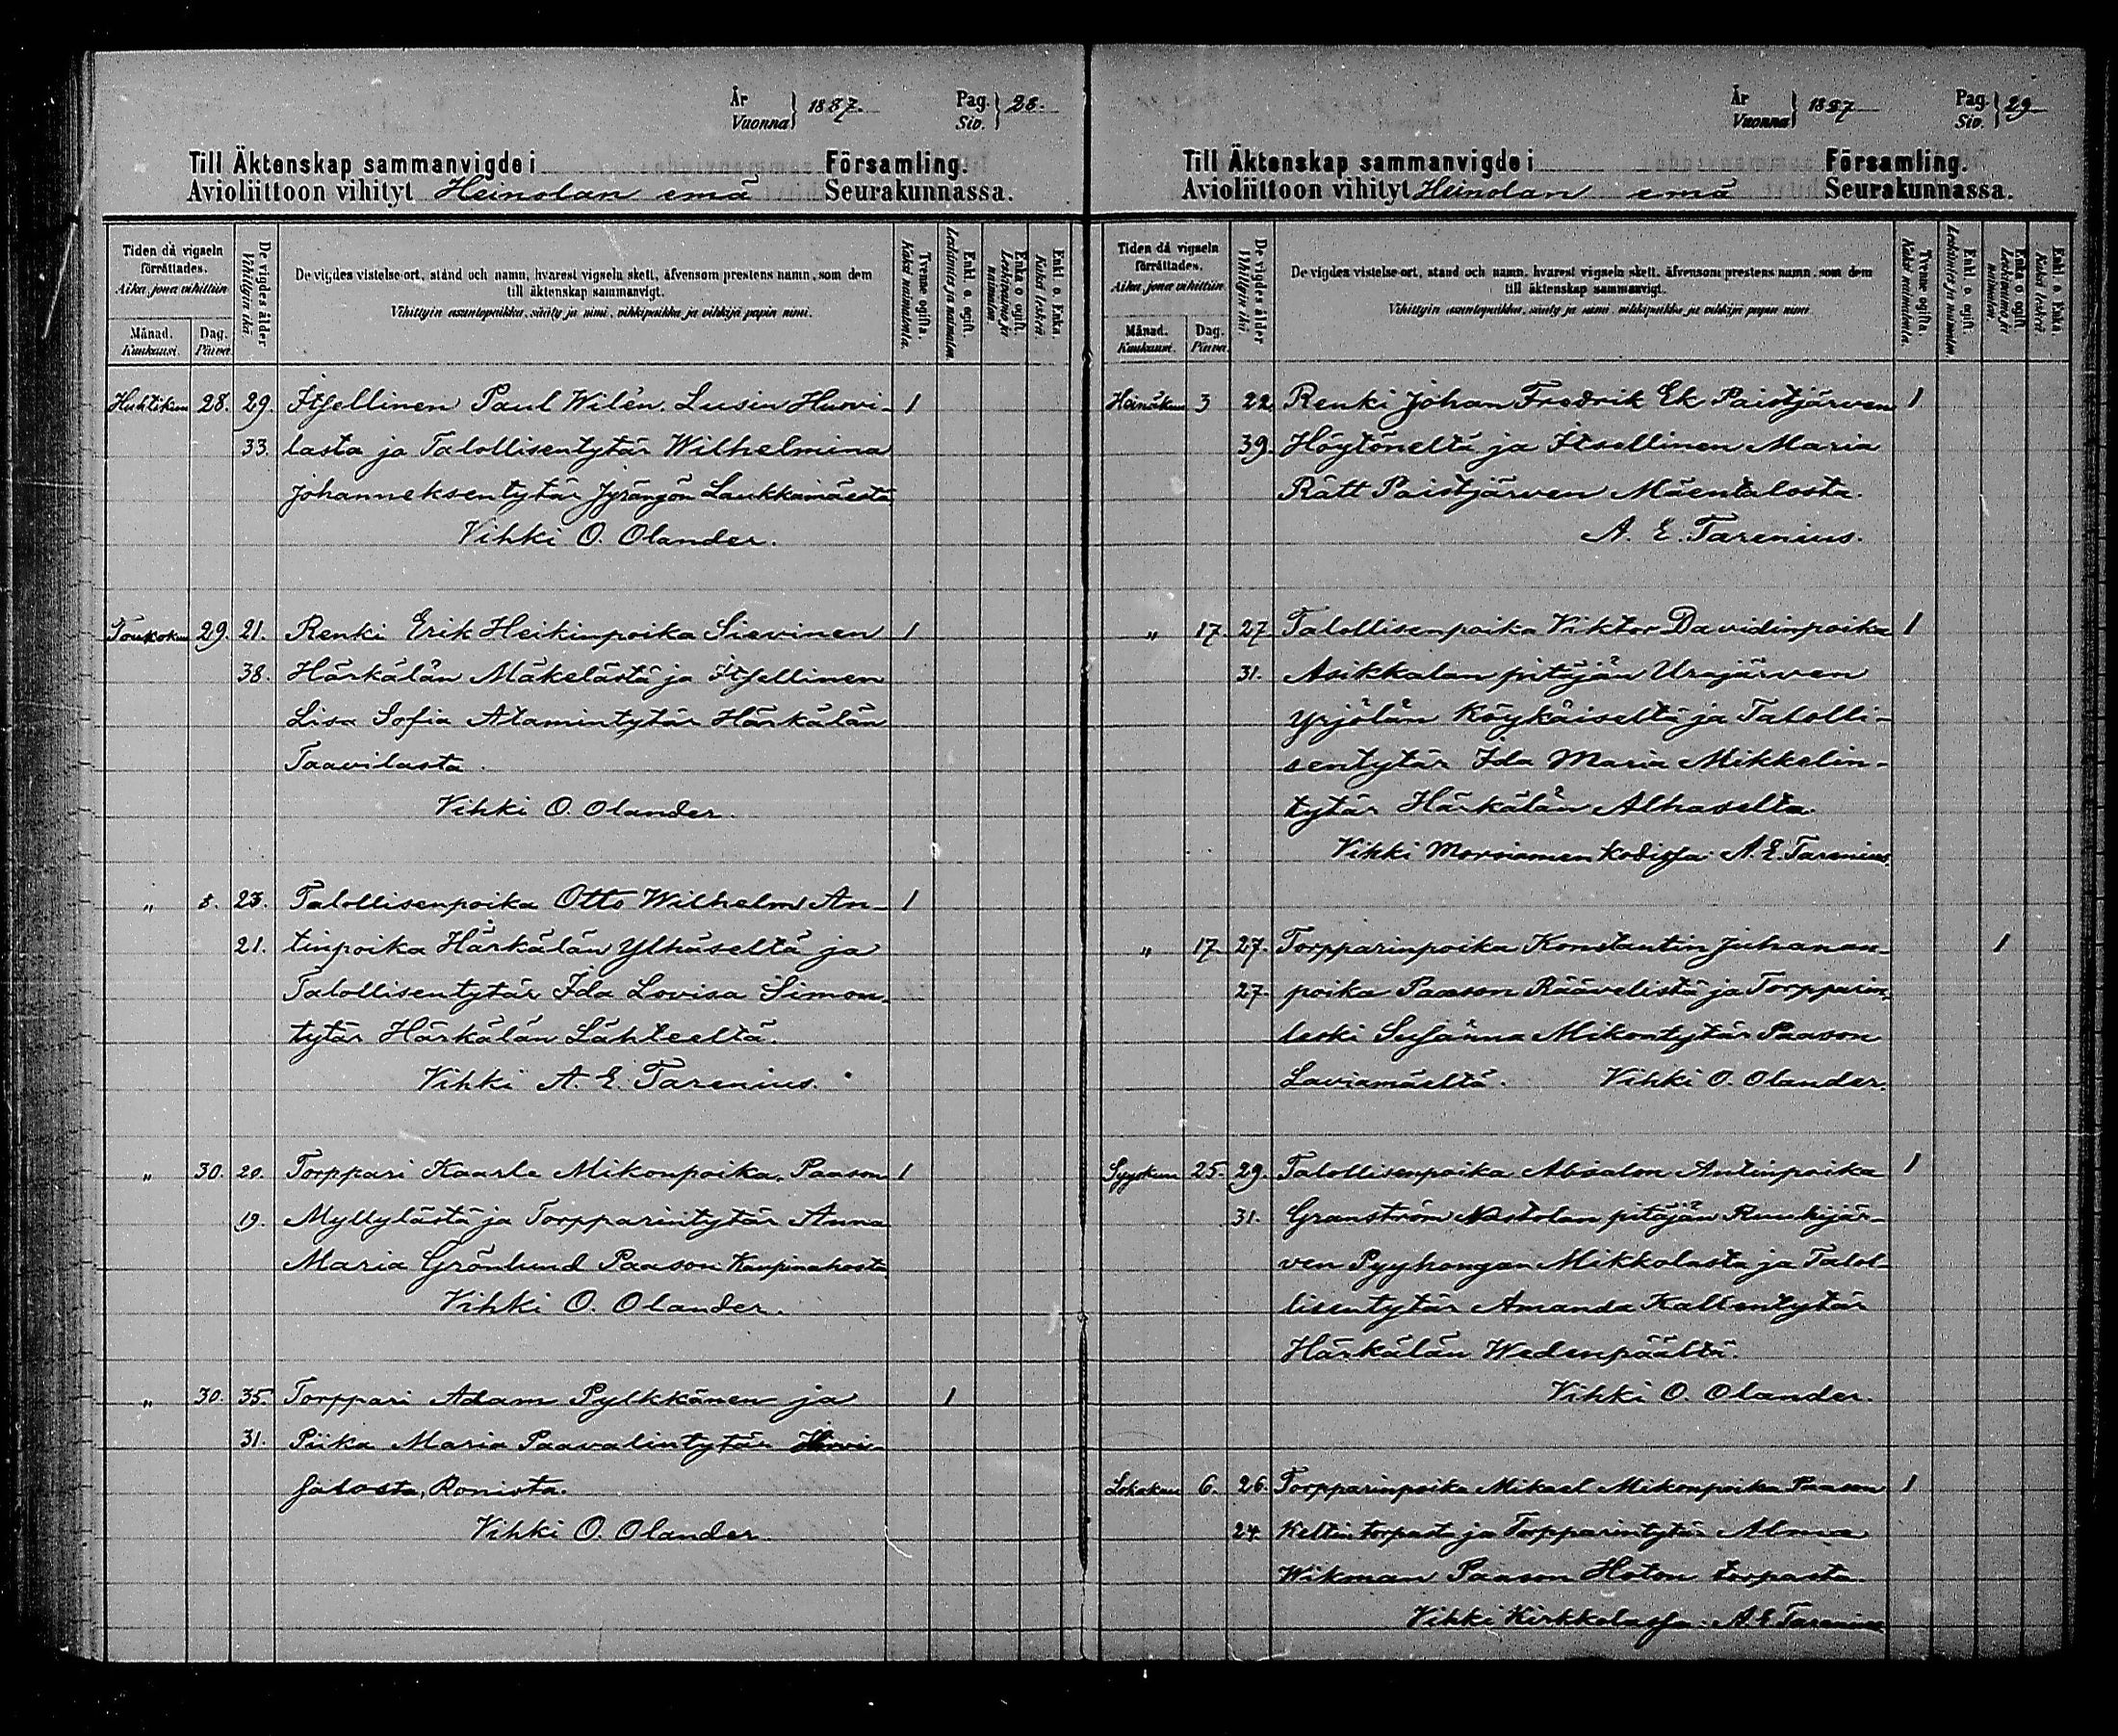 År
Vuonna } 1887. Pag.
Siv. } 28.
Till Äktenskap sammanvigde i Församling.
Avioliittoon vihityt Heinolan emä Seurakunnassa.
Tiden då vigseln förrättades.
Aika, jona vihittiin
Månad. Kuukausi.
Dag. Päivä.
De vigdes ålder
Vihittyin ikä.
De vigdes vistelse-ort, stånd och namn, hvarest vigseln skett, äfvensom prestens namn, som dem
till äktenskap sammanvigt.
Vihittyin asuntopaikka, sääty ja nimi, vihkipaikka ja vihkijä papin nimi.
Tvenne ogifta.
Kaksi naimatonta.
Enkl. o. ogift.
Leskimies ja naimaton.
Enka o. ogift.
Leskivaimo ja naimaton.
Enkl. o. Enka.
Kaksi leskeä.
Huhtikuu 28. 29. Itsellinen Paul Wilén. Lusin Huovi- 1
33. lasta ja Talollisentytär Wilhelmina
Johanneksentytär Jyrängön Laukkamäestä
Vihki O. Olander.
Toukokuu 29. 21. Renki Erik Heikinpoika Sievinen 1
38. Härkälän Mäkelästä ja Itsellinen
Lisa Sofia Atamintytär Härkälän
Taavilasta.
Vihki O. Olander.
" 8. 23. Talollisenpoika Otto Wilhelm An- 1
21. tinpoika Härkälän Ylhäseltä ja
Talollisentytär Ida Lovisa Simon-
tytär Härkälän Lähteeltä.
Vihki A. E. Tarenius.
" 30. 20. Torppari Kaarle Mikonpoika, Paason 1
19. Myllylästä ja Torpparintytär Anna
Maria Grönlund Paason
Vihki O. Olander.
" 30. 35. Torppari Adam Pylkkänen ja 1
31. Piika Maria Paavalintytär
Ronista.
Vihki O. Olander
År
Vuonna } 1887 Pag.
Siv. } 29
Till Äktenskap sammanvigde i Församling.
Avioliittoon vihityt Heinolan emä Seurakunnassa.
Tiden då vigseln förrättades.
Aika, jona vihittiin
Månad. Kuukausi.
Dag. Päivä.
De vigdes ålder
Vihittyin ikä.
De vigdes vistelse-ort, stånd och namn, hvarest vigseln skett, äfvensom prestens namn, som dem
till äktenskap sammanvigt.
Vihittyin asuntopaikka, sääty ja nimi, vihkipaikka ja vihkijä papin nimi.
Tvenne ogifta.
Kaksi naimatonta.
Enkl. o. ogift.
Leskimies ja naimaton.
Enka o. ogift.
Leskivaimo ja naimaton.
Enkl. o. Enka.
Kaksi leskeä.
Heinäkuu 3 22. Renki Johan Fredrik Ek Paistjärven 1
39. Höytöneltä ja Itsellinen Maria
Rätt Paistjärven Mäentalosta.
A. E. Tarenius.
" 17. 27 Talollisenpoika Viktor Davidinpoika 1
31. Asikkalan pitäjän Urajärven
Yrjölän Köykäiseltä ja Talolli-
sentytär Ida Maria Mikkelin-
tytär Härkälän Alhaselta
Vihki Morsiamen kodissa A. E. Tarenius.
" 17. 27. Torpparinpoika Konstantin Juhanan- 1
27. poika Paason Räävelistä ja Torpparin-
leski Susanna Mikontytär Paason
Laviamäeltä. Vihki O. Olander.
Syyskuu 25. 29. Talollisenpoika Absalon Antinpoika 1
31. Granström Nastolan pitäjän Ruuhijär-
ven Pyyhongan Mikkolasta ja Talol-
lisentytär Amanda Kallentytär
Härkälän Wedenpäältä.
Vihki O. Olander.
Lokakuu 6. 26. Torpparinpoika Mikael Mikonpoika Paason 1
24. torpasta ja Torpparintytär Alma
Wikman Paason Hoton torpasta
Vihki Kirkkolassa A. E. Tarenius